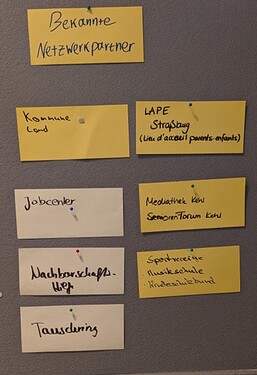 Bekannte
Netzwerkpartner
Kommune
Land
LAPE
Straßburg
(Lieu d'accueil parents-enfants)
Jobcenter
Mediathek Kehl
SeniorenForum Kehl
Nachbarschafts-
Sportvereine
Musikschule
Kinderschutzbund
Tauschring